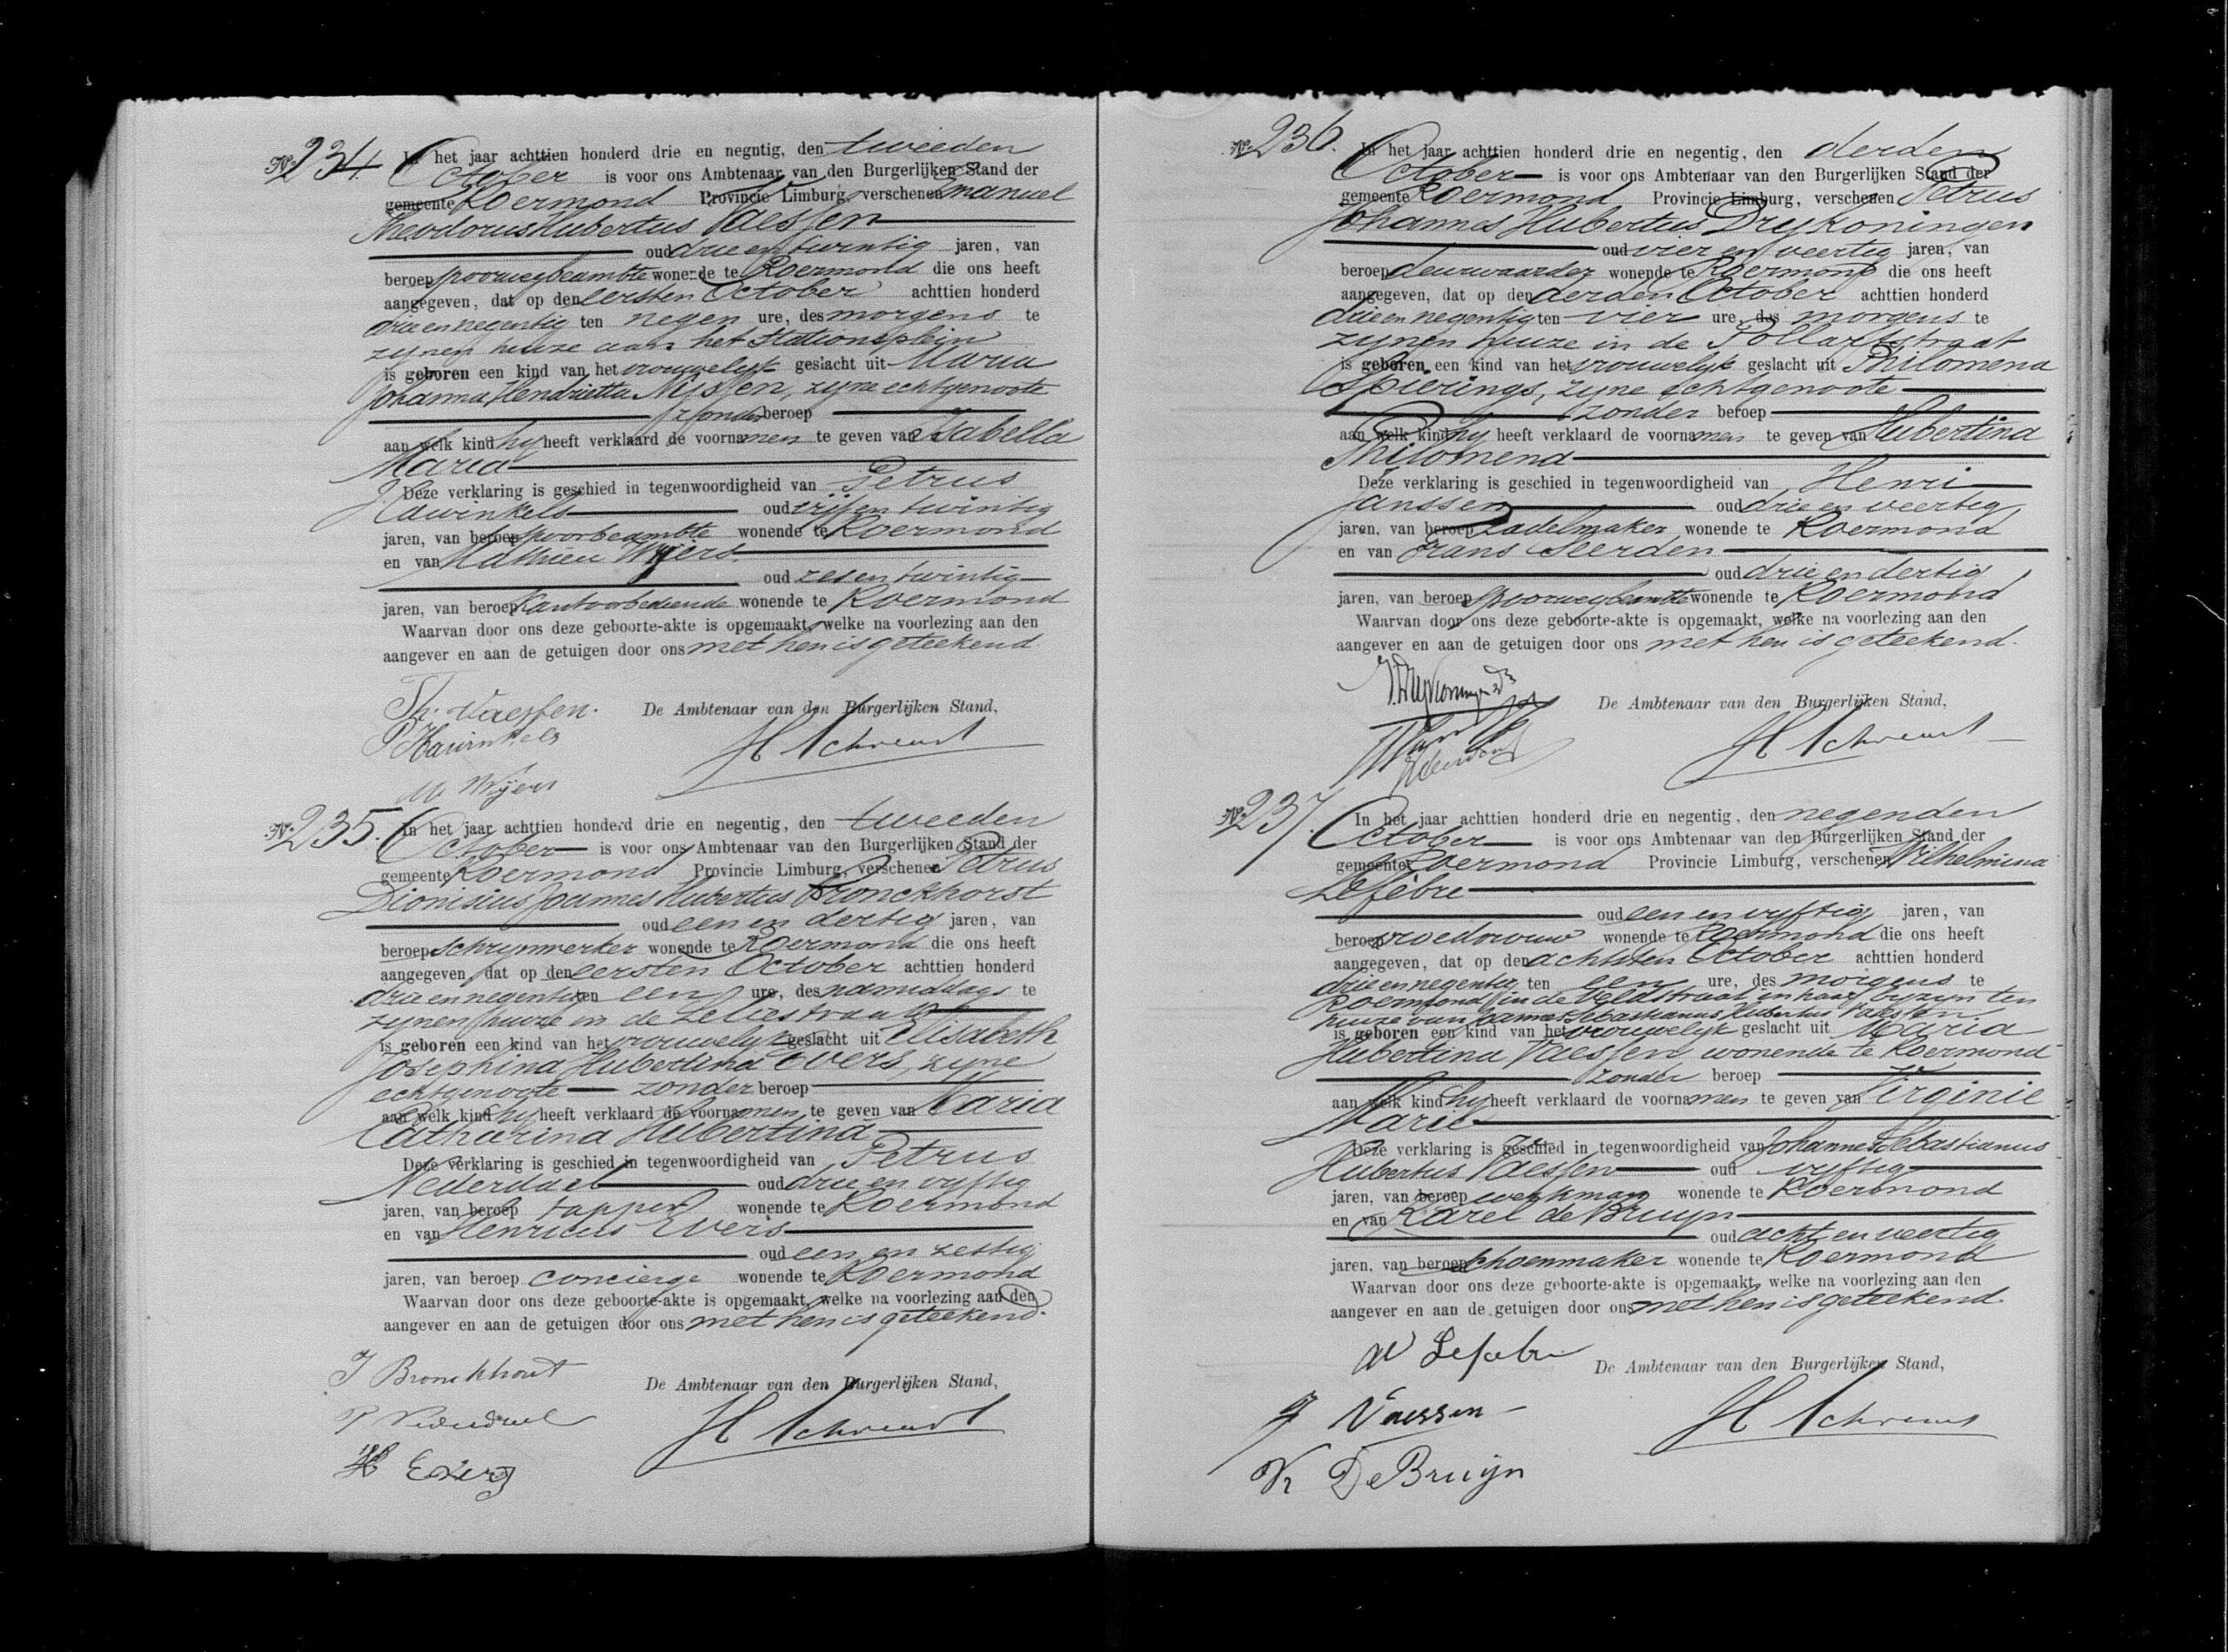 No 234. In het jaar achttien honderd drie en negntig, den tweeden
October is voor ons Ambtenaar van den Burgerlijken Stand der
gemeente Roermond Provincie Limburg, verschenen Emanuel
Theodorus Hubertus Vaessen
oud drie en twintig jaren, van
beroep spoorwegbeambte wonende te Roermond die ons heeft
aangegeven, dat op den eersten October achttien honderd
drie en negentig ten negen ure, des morgens te
zynen huize aan het Stationsplein
is geboren een kind van het vrouwelyk geslacht uit Maria
Johanna Hendrietta Nyssen, zyne echtgenoote
zonder beroep
aan welk kind hy heeft verklaard de voornamen te geven van Isabella
Maria
Deze verklaring is geschied in tegenwoordigheid van Petrus
Hawinkels oud vijf en twintig
jaren, van beroep spoorbeambte wonende te Roermond
en van Mathieu Wijers
oud zes en twintig
jaren, van beroep kantoorbediende wonende te Roermond
Waarvan door ons deze geboorte-akte is opgemaakt, welke na voorlezing aan den
aangever en aan de getuigen door ons met hen is geteekend.
Th. Vaessen. De Ambtenaar van den Burgerlijken Stand,
P Hawinkels
M Wijers
No 235. In het jaar achttien honderd drie en negentig, den tweeden
October is voor ons Ambtenaar van den Burgerlijken Stand der
gemeente Roermond Provincie Limburg, verschenen Petrus
Dionisius Joannes Hubertus Bronckhorst
oud een en dertig jaren, van
beroep schrynwerker wonende te Roermond die ons heeft
aangegeven, dat op den eersten October achttien honderd
drie en negentig ten een ure, des namiddags te
zynen huize in de Leliestraat
is geboren een kind van het vrouwelyk geslacht uit Elisabeth
Josephina Hubertina Evers, zyne
echtgenoote zonder beroep
aan welk kind hy heeft verklaard de voornamen te geven van Maria
Catharina Hubertina
Deze verklaring is geschied in tegenwoordigheid van Petrus
Nederdael oud drie en vyftig
jaren, van beroep tapper wonende te Roermond
en van Henricus Evers
oud een en zestig
jaren, van beroep concierge wonende te Roermond
Waarvan door ons deze geboorte-akte is opgemaakt, welke na voorlezing aan den
aangever en aan de getuigen door ons met hen is geteekend.
J Bronckhorst
De Ambtenaar van den Burgerlijken Stand,
P Nederdael
H Evers
No 236. In het jaar achttien honderd drie en negentig, den derden
October is voor ons Ambtenaar van den Burgerlijken Stand der
gemeente Roermond Provincie Limburg, verschenen Petrus
Johannes Hubertus Dreykoningen
oud vier en veertig jaren, van
beroep deurwaarder wonende te Roermond die ons heeft
aangegeven, dat op den derden October achttien honderd
drie en negentig ten vier ure, des morgens te
zynen huize in de Pollartstraat
is geboren een kind van het vrouwelyk geslacht uit Philomena
Spierings, zyne echtgenoote
zonder beroep
aan welk kind hy heeft verklaard de voornamen te geven van Hubertina
Philomena
Deze verklaring is geschied in tegenwoordigheid van Henri
Janssen oud drie en veertig
jaren, van beroep zadelmaker wonende te Roermond
en van Frans Seerden
oud drie en dertig
jaren, van beroep spoorwegbeambte wonende te Roermond
Waarvan door ons deze geboorte-akte is opgemaakt, welke na voorlezing aan den
aangever en aan de getuigen door ons met hen is geteekend.
De Ambtenaar van den Burgerlijken Stand,
No 237. In het jaar achttien honderd drie en negentig, den negenden
October is voor ons Ambtenaar van den Burgerlijken Stand der
gemeente Roermond Provincie Limburg, verschenen Wilhelmina
Lefèbre
oud een en vyftig jaren, van
beroep vroedvrouw wonende te Roermond die ons heeft
aangegeven, dat op den achtsten October achttien honderd
drie en negentig ten een ure, des morgens te
Roermond in de Veldstraat in haar byzyn ten
huize van Johannes Sebastianus Hubertus Vaessen
is geboren een kind van het vrouwelyk geslacht uit Maria
Hubertina Vaessen wonende te Roermond
zonder beroep
aan welk kind hy heeft verklaard de voornamen te geven van Virginie
Marie
Deze verklaring is geschied in tegenwoordigheid van Johannes Sebastianus
Hubertus Vaessen oud vyftig
jaren, van beroep werkman wonende te Roermond
en van Karel de Bruyn
oud acht en veertig
jaren, van beroep schoenmaker wonende te Roermond
Waarvan door ons deze geboorte-akte is opgemaakt, welke na voorlezing aan den
aangever en aan de getuigen door ons met hen is geteekend.
W Lefebre
De Ambtenaar van den Burgerlijken Stand,
J Vaessen
K De Bruijn